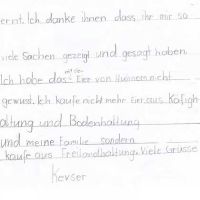 ernt. Ich danke ihnen dass ihr mir so
viele Sachen gezeigt und gesagt haben.
Ich habe das mit den Eier von Hühnern nicht
gewusst. Ich kaufe nicht mehr Eier aus Käfigh-
altung und Bodenhaltung
und meine Familie sondern
kaufe aus Freilandhaltung. Viele Grüsse
Kevser